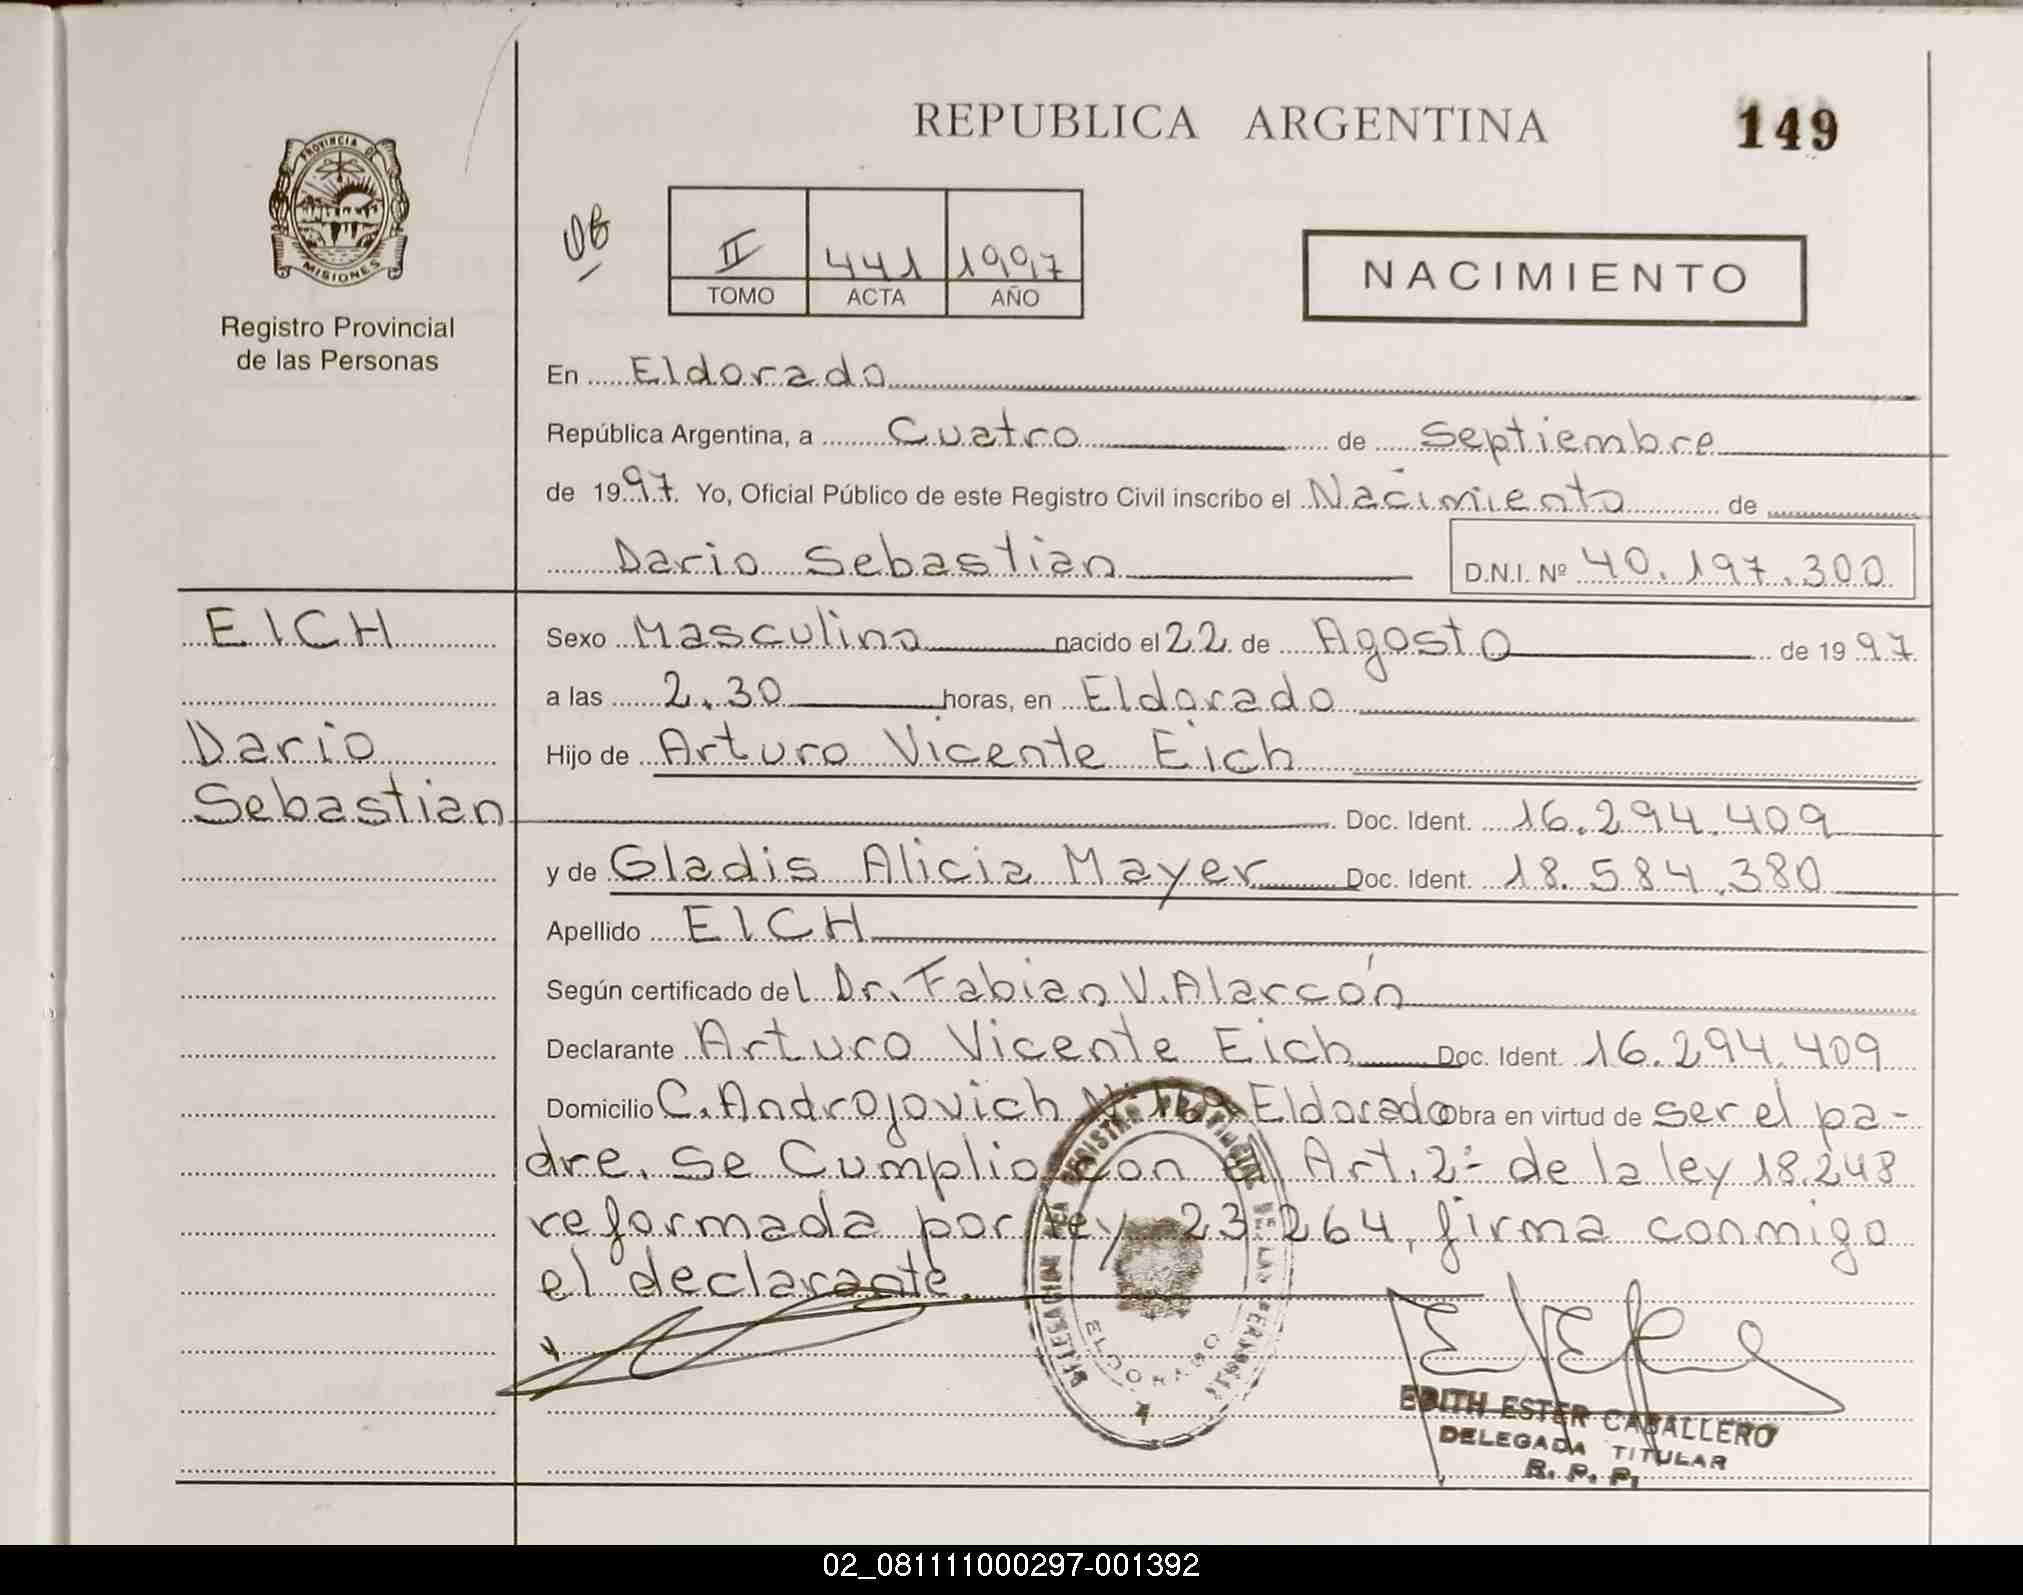 REPUBLICA ARGENTINA
149
PROVINCIA DE
MISIONES
Registro Provincial
de las Personas
II 441 1997
TOMO ACTA AÑO
NACIMIENTO
En Eldorado
República Argentina, a Cuatro de Septiembre
de 1997. Yo, Oficial Público de este Registro Civil inscribo el Nacimiento de
Dario Sebastian D.N.I. Nº 40.197.300
EICH
Dario
Sebastian
Sexo Masculino nacido el 22 de Agosto de 1997
a las 2.30 horas, en Eldorado
Hijo de Arturo Vicente Eich
Doc. Ident. 16.294.409
y de Gladis Alicia Mayer Doc. Ident. 18.584.380
Apellido EICH
Según certificado del Dr. Fabian V. Alarcón
Declarante Arturo Vicente Eich Doc. Ident. 16.294.409
Domicilio C. Androjovich Eldorado obra en virtud de ser el pa-
dre. Se Cumplio con Art. 2º de la ley 18.248
reformada por ley 23264, firma conmigo
el declarante.
ELDORADO
EDITH ESTER CABALLERO
DELEGADA TITULAR
R. P. P.
02_081111000297-001392